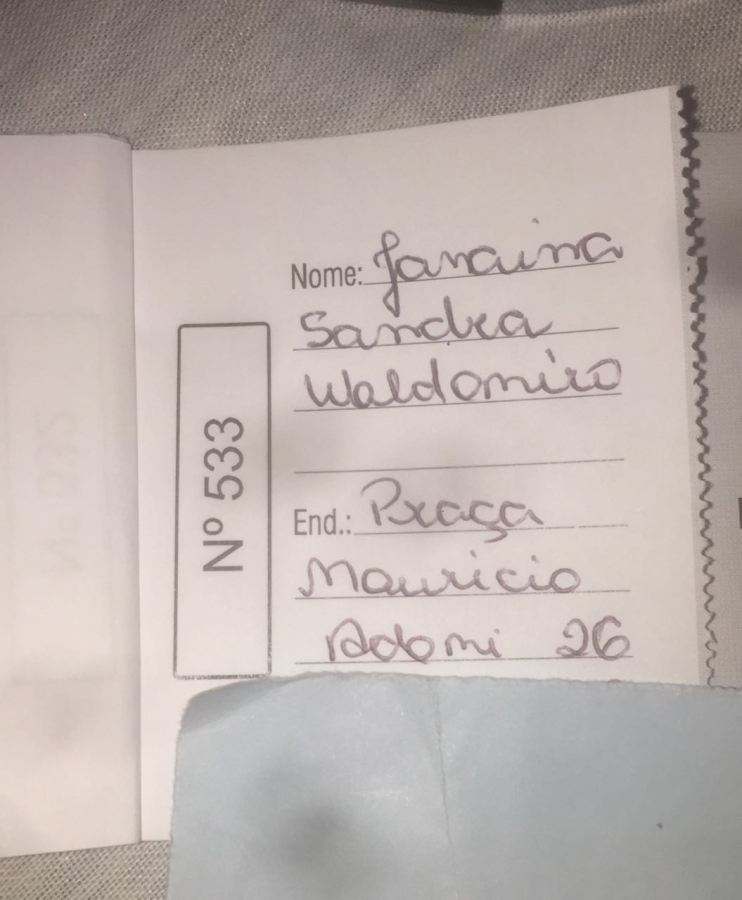 Nome: Janaina
Sandra
Waldomiro
End.: Praça
Mauricio
Adomi 26
Nº 533